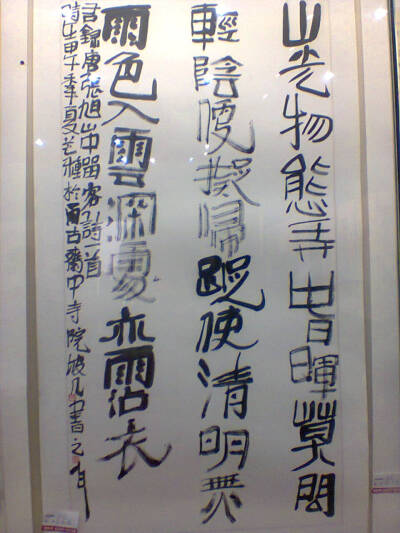 山光物態弄春暉莫
輕陰便擬歸使清明無
雨色入雲深處亦霑衣
錄唐張旭山中留客詩一首
時在甲午季夏芒種於雨古齋寺院坡書之